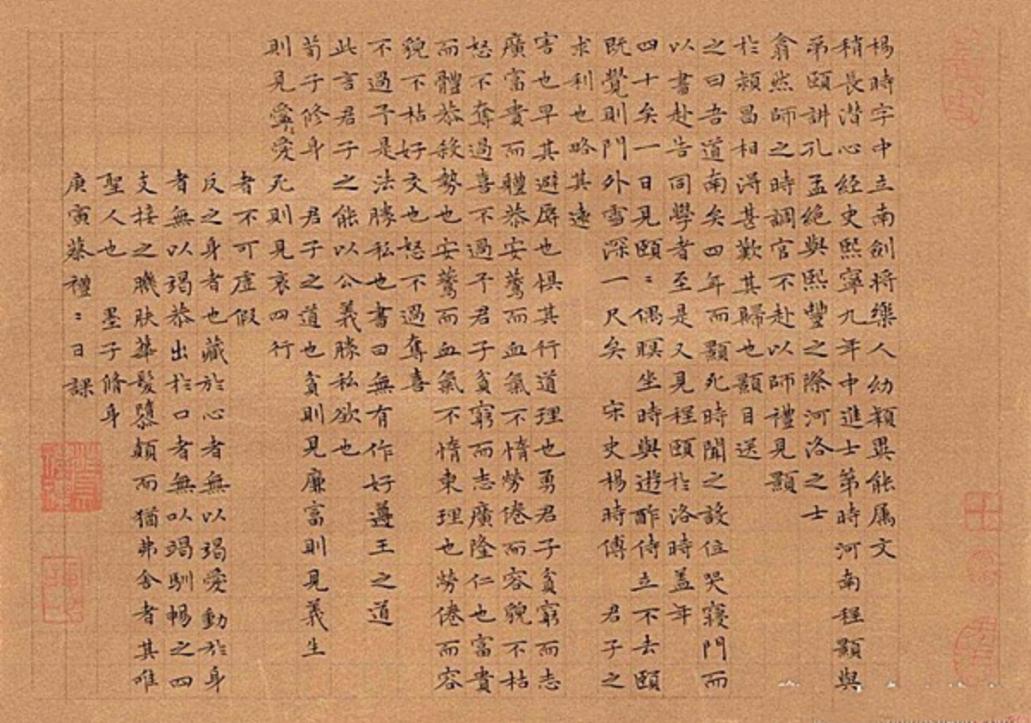 楊時字中立南劍將樂人幼穎異能属文
稍長潜心經史熙寧九年中進士第時河南程顥與
弟頤講孔孟絶與熙豐之際河洛之士
翕然師之時調官不赴以師禮見顥
於潁昌相淂甚歡其歸也顥目送
之曰吾道南矣四年而顥死時聞之設位哭寢門而
以書赴告同學者至是又見程頤於洛時盖年
四十矣一日見頤：偶瞑坐時與遊酢侍立不去頤
既覺則門外雪深一尺矣 宋史楊時傳 君子之
求利也略其遠
害也早其避辱也惧其行道理也勇君子貧窮而志
廣富貴而體恭安驚而血氣不惰勞倦而容貌不枯
怒不奪過喜不過予君子貧窮而志廣隆仁也富貴
而體恭殺勢也安驚而血氣不惰柬理也勞倦而容
貌不枯好交也怒不過奪喜
不過予是法勝私也書曰無有作好遵王之道
此言君子之能以公義勝私欲也
荀子修身 君子之道也貧則見廉富則見義生
則見愛愛死則見哀四行
者不可虚假
反之身者也藏於心者無以竭愛動於身
者無以竭恭出於口者無以竭馴暢之四
支接之肤華髮隳顛而猶弗舍者其唯
聖人也 墨子脩身
庚寅蔡禮：日課